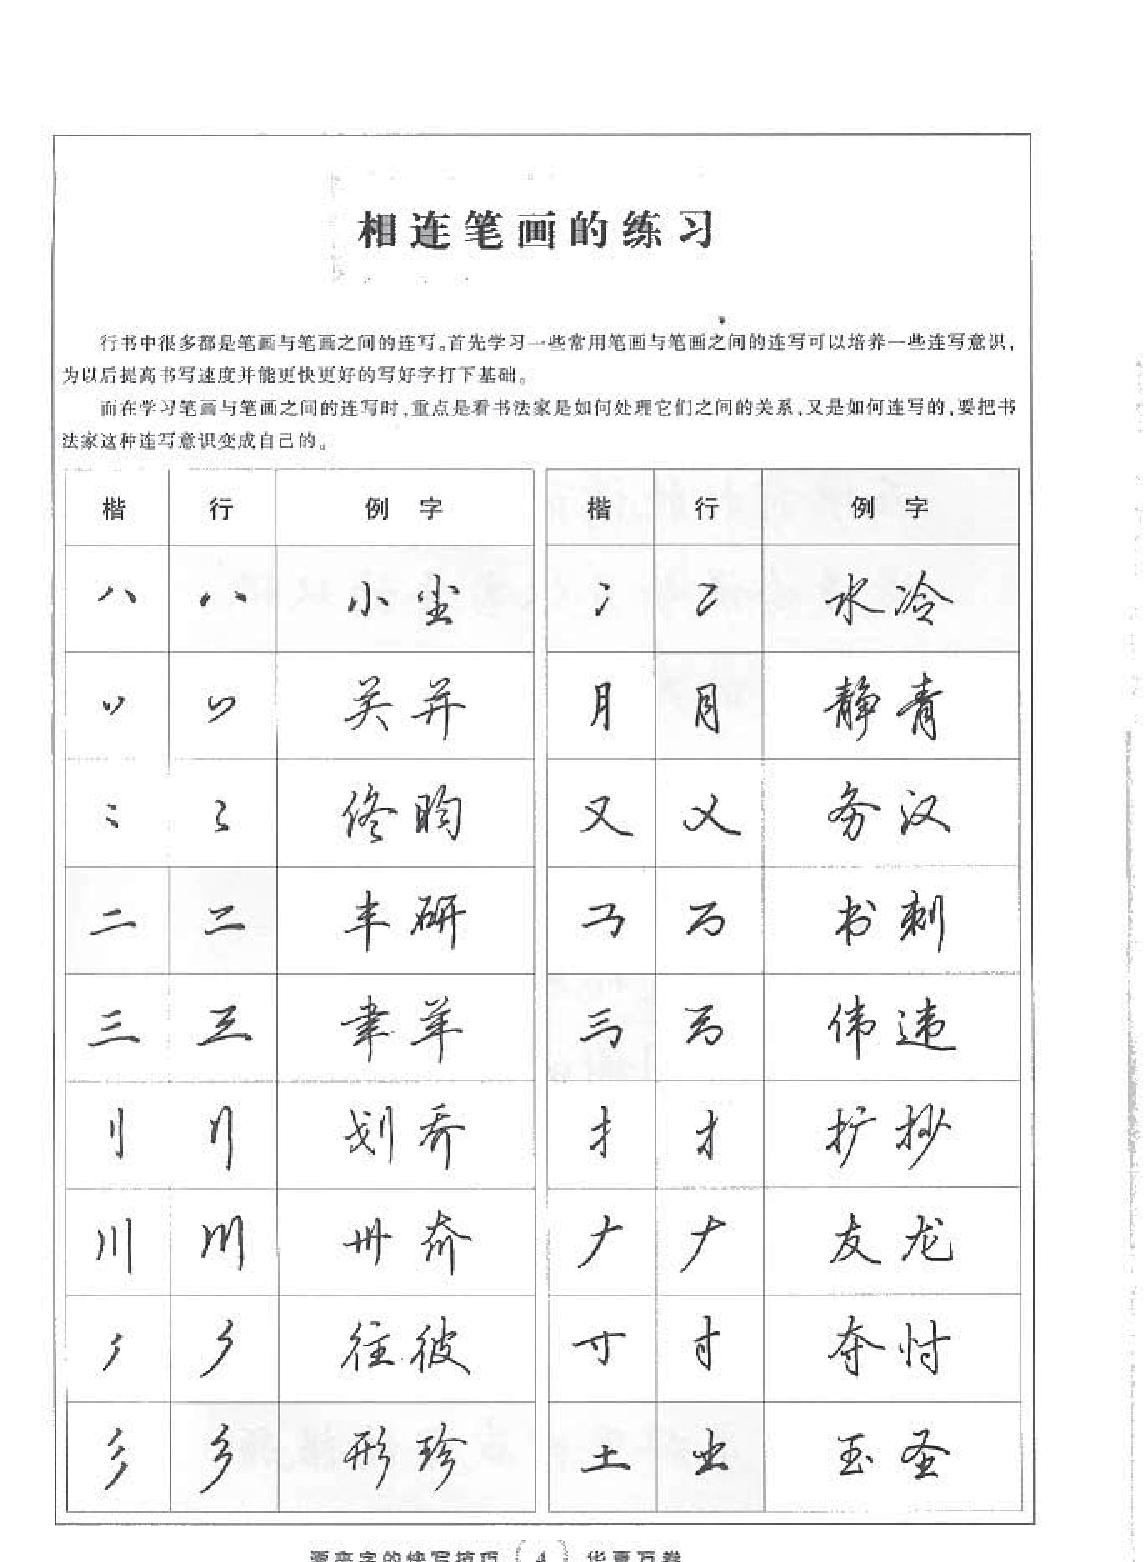 相连笔画的练习
行书中很多都是笔画与笔画之间的连写。首先学习一些常用笔画与笔画之间的连写可以培养一些连写意识,
为以后提高书写速度并能更快更好的写好字打下基础。
而在学习笔画与笔画之间的连写时,重点是看书法家是如何处理它们之间的关系,又是如何连写的,要把书
法家这种连写意识变成自己的。
楷 行 例 字 楷 行 例 字
八 八 小 尘 冫 冫 水 冷
丷 丷 关 并 月 月 静 青
佟 昀 又 又 务 汉
二 二 丰 研 书 刺
三 三 聿 羊 伟 违
刂 刂 划 乔 扌 扌 扩 抄
川 川 卅 乔 𠂇 𠂇 友 龙
往 彼 寸 寸 夺 忖
彡 彡 形 珍 土 土 玉 圣
漂亮字的快写技巧 4 华夏万卷